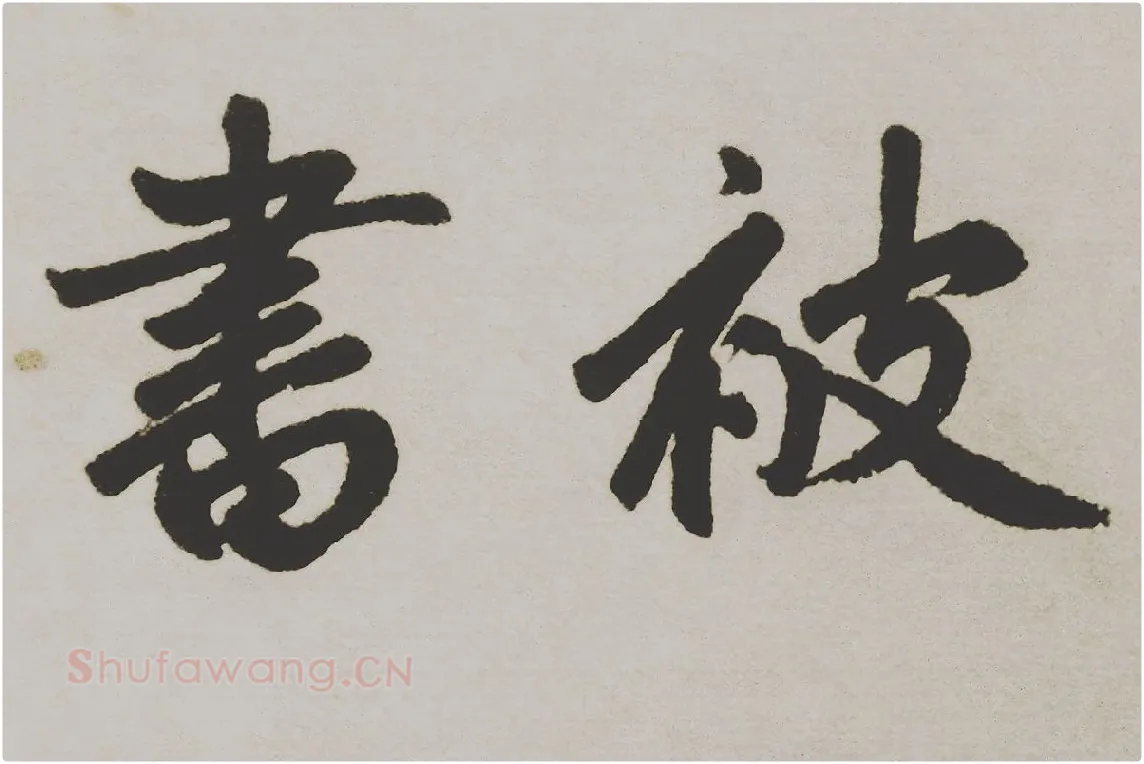 被書
Shufawang.CN